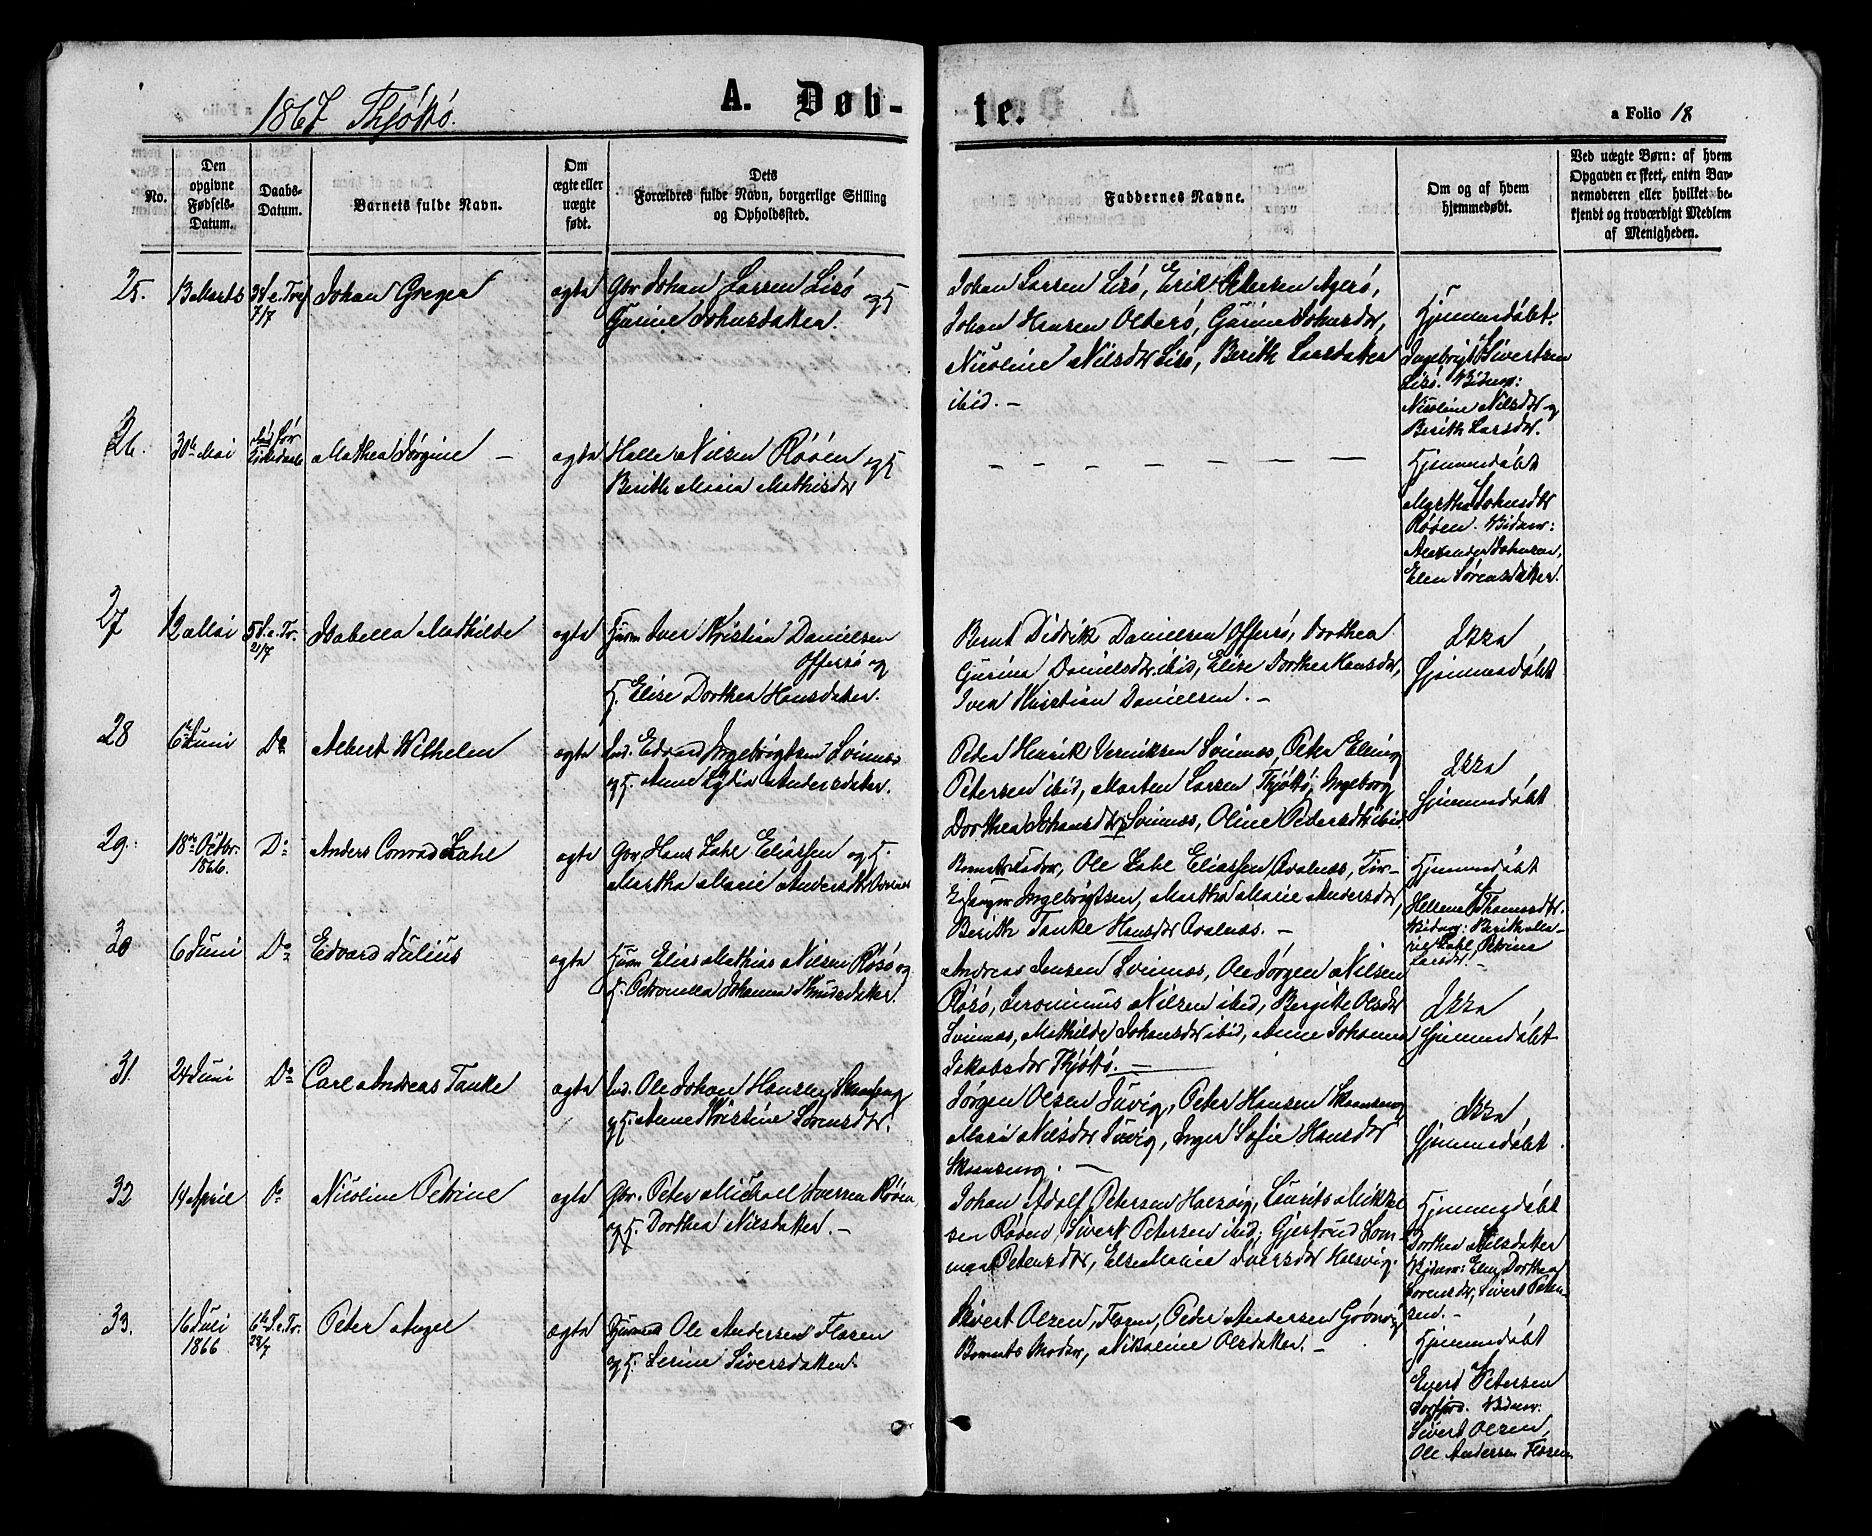 1867 Thjøttø.
A. Døb-
te.
a Folio 18
No.
Den opgivne Fødsels-Datum.
Daabs-Datum.
Barnets fulde Navn.
Om ægte eller uægte født.
Dets Forældres fulde Navn, borgerlige Stilling og Opholdssted.
Faddernes Navne.
Om og af hvem hjemmedøbt.
Ved uægte Børn: af hvem Opgaven er skeet, enten Barnemoderen eller hvilket bekjendt og troværdigt Medlem af Menigheden.
25. 13 Marts 3 S. e. Tref 7/7 Johan Greger ægte Gbr Johan Larsen Lisø og H Gurine Johnsdatter.
Johan Larsen Lisø, Erik Petersen Agerø,
Johan Hansen Olderø, Gurine Johnsdr,
Nicoline Nilsdr Lisø, Berith Larsdatter
ibid. -
Hjemmedøbt.
Ingebrigt Sivertsen
Lisø. Vidner:
Nicoline Nilsdr og
Berith Larsdr.
26. 30te Mai Mathea Jørgine - ægte Halle Nilsen Røøen og H
Berith Maria Mathisdr
- - - - - - -
Hjemmedøbt
Martha Johnsdtr
Røøen. Vidner:
Alexander Johnsen,
Elen Sørensdatter.
27 12 Mai 5 S. e. Tr. 21/7 Isabella Mathilde ægte Huusm Iver Kristian Danielsen
Offersø og
H. Elise Dorthea Hansdatter.
Bernt Didrik Danielsen Offersø, Dorthea
Gurina Danielsdtr ibid, Elise Dorthea Hansdr,
Iver Kristian Danielsen. -
Ikke
Hjemmedøbt
28 6te Juni Do Albert Wilhelm ægte Ind. Edvard Ingebrigtsen Svinnes
og H. Anne Lydia Andersdatter.
Peter Henrik Svinnes, Peter Elling
Petersen ibid, Morten Larsen Thjøttø, Ingeborg
Dorthea Johansdtr Svinnes, Oline Pedersdtr ibid
Ikke
Hjemmedøbt
29. 18de Octbr. 1866. Do Anders Conrad Zahl ægte Gbr. Hans Zahl Eliassen og H.
Martha Marie Andersdtr
Barnets Fader, Ole Zahl Eliassen Qvalnæs,
Ingebrigtsen, Martha Marie Andersdr,
Berith Tanke Hansdtr Qvalnæs. -
Hjemmedøbt
Hellene Thomasdtr.
Vidner: Berith Ma-
rie Zahl, Petrine
Larsdr. -
30 6 Juni Do Edvard Julius ægte Huusm Elias Mathias Nilsen Røsø og
H. Petronella Johanna Knudsdatter.
Andreas Jensen Svinnes, Ole Jørgen Nilsen
Røsø, Jeronimus Nilsen ibid, Bergitte Olsdtr
Svinnes, Mathilde Johansdtr ibid, Anne Johanna
Jakobsdtr Thjøttø. -
Ikke
Hjemmedøbt
31. 24 Juni Do Carl Andreas Tanke ægte Ind. Ole Johan Hansen
og H. Anne Kristine Sørensdtr.
Jørgen Olsen Juvig, Peter Hansen
Maria Nilsdtr Juvig, Inger Sofie Hansdtr
Ikke
Hjemmedøbt
32 14 April Do Nicoline Petrine ægte Gbr. Peter Michael Iversen Røøen,
og H. Dorthea Nilsdatter. -
Johan Adolf Petersen Halsvig, Laurits Mikkel
sen Røøen, Sivert Petersen ibid, Gjertrud
Petersdtr, Else Marie Iversdtr Halsvig.
Hjemmedøbt
Dorthea Nilsdatter
Vidner: Elen Dorthea
Sørensdr, Sivert Peter-
sen. -
33. 16 Juli 1866 6te S. e. Tr. 28/7 Peter Angel ægte Huusmd Ole Andersen Flosen
og H. Serine Siversdatter
Sivert Olsen, Flosen, Peder Andersen Grønvig
Barnets Moder, Nikoline Olsdatter. -
Hjemmedøbt
Evert Petersen
Vidner:
Sivert Olsen,
Ole Andersen Flosen